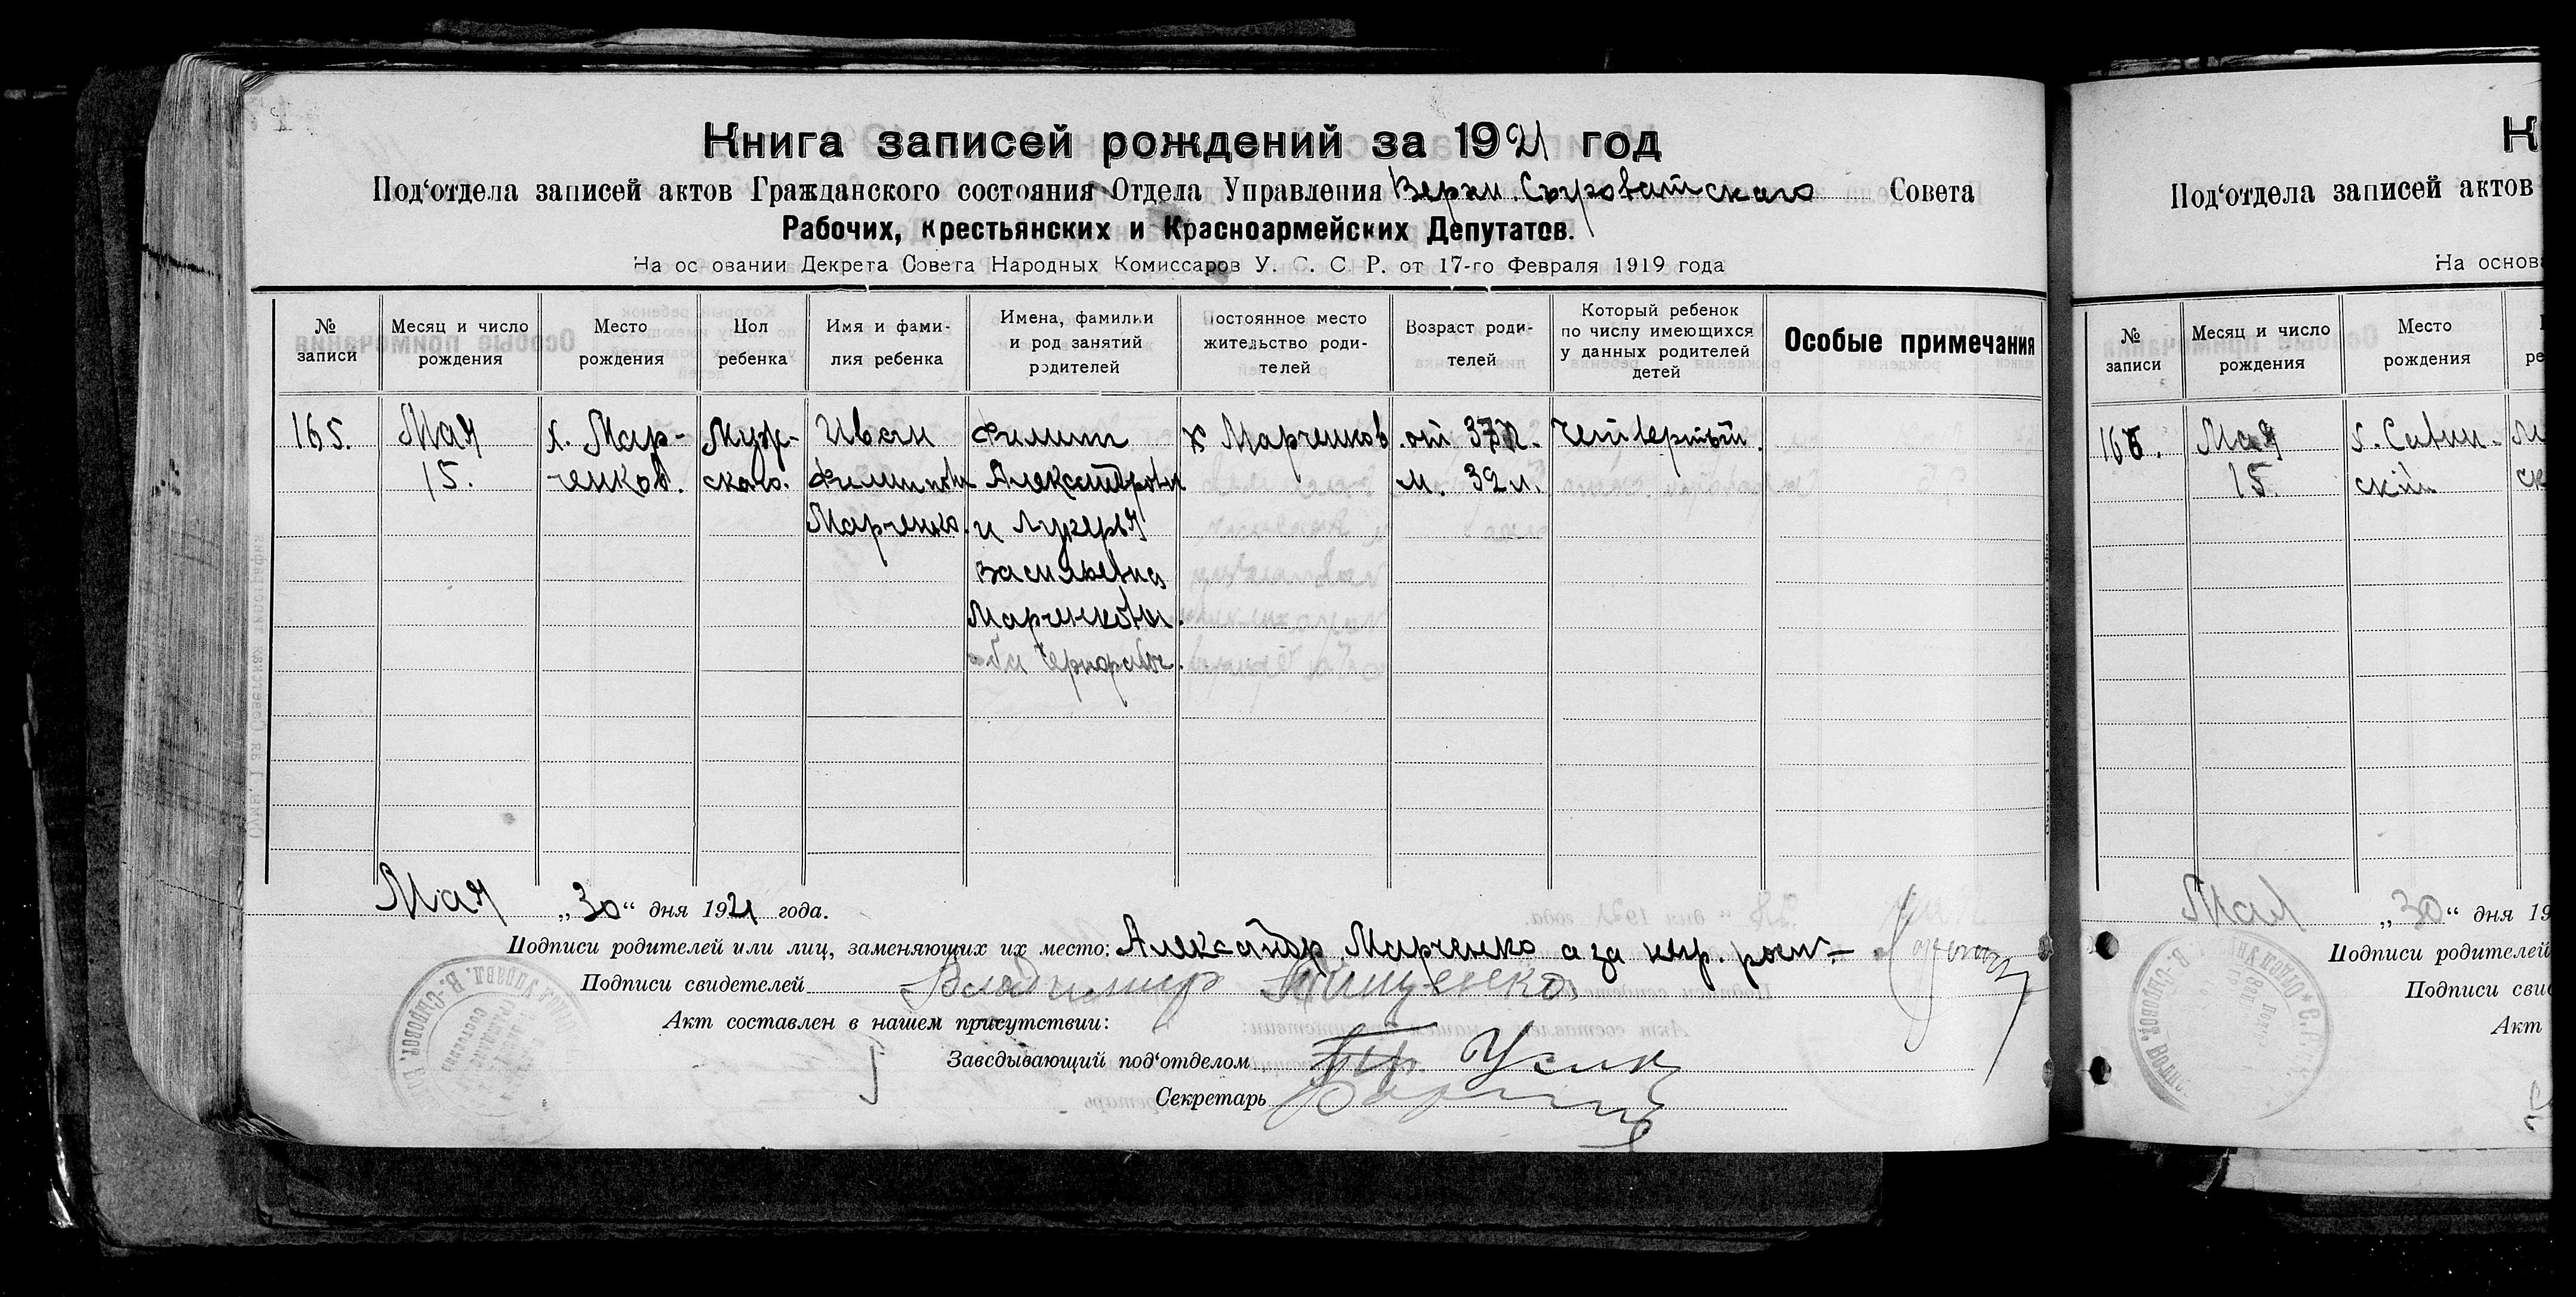 Книга записей рождений за 1921 год
Под‘отдела записей актов Гражданского состояния Отдела Управления Верхн. Сыроватского Совета
Рабочих, крестьянских и Красноармейских Депутатов.
На основании Декрета Совета Народных Комиссаров У. С. С. Р. от 17-го Февраля 1919 года
№ записи
Месяц и число рождения
Место рождения
Пол ребенка
Имя и фами-
лия ребенка
Имена, фамилии
и род занятий
родителей
Постоянное место
жительство роди-
телей
Возраст роди-
телей
Который ребенок
по числу имеющихся
у данных родителей
детей
Особые примечания
165.
Мая
15.
х. Мар-
ченков.
Муж-
ского.
Иван
Филиппович
Марченко.
Филипп
Александрович
и Лукерья
Васильевна
Марченковы.
оба чернораб.
х Марченков
от. 37 л.
м. 32 л.
Четвертый.
Мая „30“ дня 1921 года.
Подписи родителей или лиц, заменяющих их место: Александр Марченко а за негр. росп.
Подписи свидетелей Владимир Тищенко
Акт составлен в нашем присутствии:
Заведывающий под‘отделом Усик
Секретарь
К
Под‘отдела записей актов
На основ
№ записи
Месяц и число рождения
Место рождения
166.
Мая
15.
х. Савин-
ский
Мая „30“ дня 19
Подписи родителей
Подписи сви
Акт